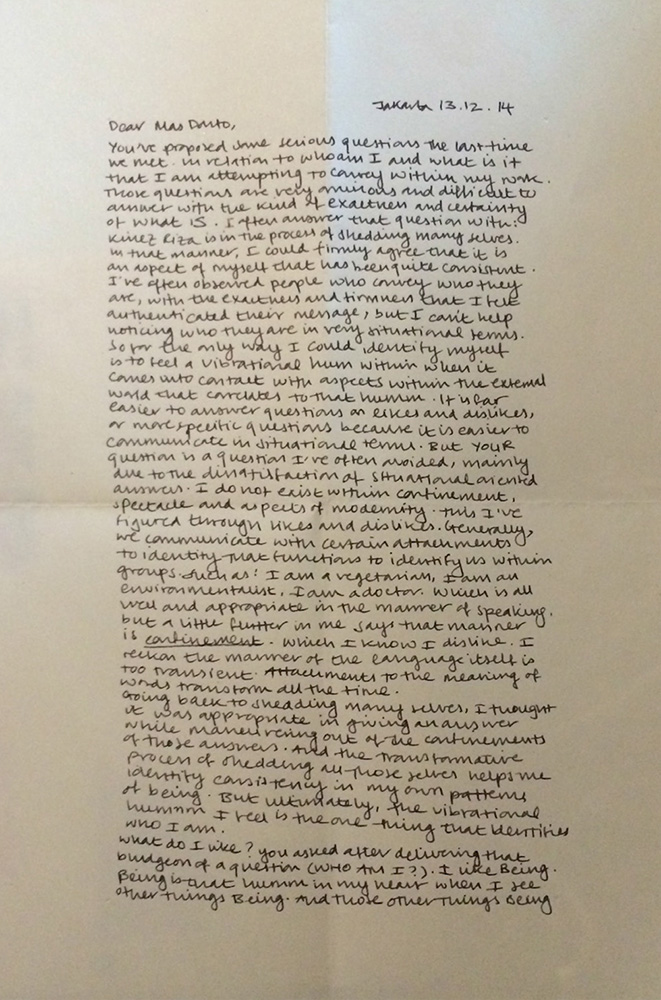 Jakarta 13.12.14
Dear Mas Danto,
You've proposed some serious questions the last time
we met. in relation to who am I and what is it
that I am attempting to convey within my work.
Those questions are very ominous and difficult to
answer with the kind of exactness and certainty
of what IS. I often answer that question with:
Kinez Riza is in the process of shedding many selves.
in that manner, I could firmly agree that it is
an aspect of myself that has been quite consistent.
I've often observed people who convey who they
are, with the exactness and firmness that I felt
authenticated their message, but I can't help
noticing who they are in very situational terms.
So far the only way I could identify myself
is to feel a vibrational hum within when it
comes into contact with aspects within the external
world that correlates to that humm. It is far
easier to answer questions on likes and dislikes,
or more specific questions because it is easier to
communicate in situational terms. But YOUR
question is a question I've often avoided, mainly
due to the dissatisfaction of situational oriented
answers. I do not exist within confinement,
spectacle and aspects of modernity. This I've
figured through likes and dislikes. Generally,
we communicate with certain attachments
to identity that functions to identify us within
groups. Such as: I am a vegetarian, I am an
environmentalist, I am a doctor. Which is all
well and appropriate in the manner of speaking.
but a little flutter in me says that manner
is confinement. Which I know I dislike. I
reckon the manner of the language itself is
too transient. Attachments to the meaning of
words transform all the time.
Going back to shedding many selves, I thought
it was appropriate in giving an answer
while maneuvering out of the confinements
of those answers. And the transformative
process of shedding all those selves helps me
identify consistency in my own patterns
of being. But ultimately, the vibrational
humm I feel is the one thing that identifies
who I am.
What do I like? you asked after delivering that
bludgeon of a question (WHO AM I?). I like Being.
Being is that humm in my heart when I see
other things Being. And those other things being